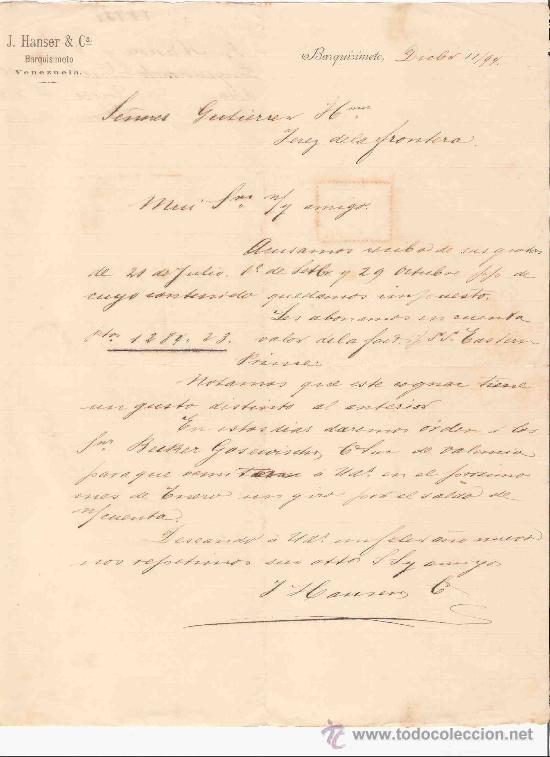 J. Hanser & Cª
Barquisimeto
Venezuela.
Barquisimeto, Dicbr 11/94.
Señores Gutierrez Hnos
Jerez de la frontera.
Mui Srs n/y amigo.
Acusamos recibo de sus gratas
de 21 de Julio. 1º de Setbr y 29 Octubre ppº de
cuyo contenido quedamos impuesto.
Les abonamos en cuenta
Pta 1289.23. valor de la fact. SS. Eastern
Prince.
Notamos que este cognac tiene
un gusto distinto al anterior
En estos dias daremos órden á los
Snr Becker de Valencia
para que á Uds. en el proximo
mes de Enero un giro por el saldo de
n/cuenta.
Deseando á Uds. un feliz año nuevo
nos repetimos sus attos SS y amigos
J Hanser Cª
todocoleccion
www.todocoleccion.net